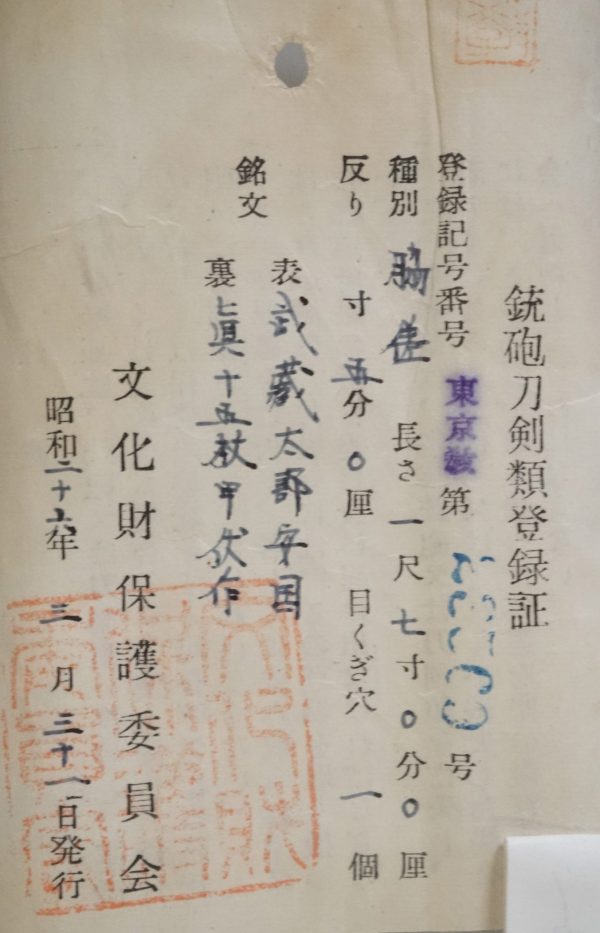 銃砲刀剣類登録証
登録記号番号 東京 第 号
種別 脇差 長さ 一尺七寸0分0厘
反り 寸五分0厘 目くぎ穴 一個
銘文 表 武蔵太郎安国
裏 眞十五枚甲伏作
文化財保護委員会
昭和二十六年三月三十一日発行